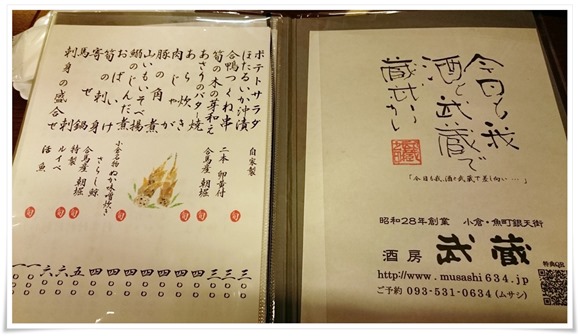 ポテトサラダ 自家製
ほたるいか沖漬 旬
合鴨つくね串 二本 卵黄付
筍の木の芽和え 合馬産 朝堀 旬
あさりのバター焼 旬
肉じゃが
豚の角煮
山いもいそべ揚
鰯のじんだ煮 小倉名物 ぬか味噌炊き
おばいけ さらし鯨
筍の刺身 合馬産 朝堀 旬
寄せ鍋 特製
馬刺 ルイベ
刺身の盛合せ 活魚
今日も我
酒と武蔵で
「今日も我、酒と武蔵で差し向い…」
昭和28年創業 小倉・魚町銀天街
酒房 武蔵
http://www.musashi634.jp
ご予約 093-531-0634 (ムサシ)
特典QR